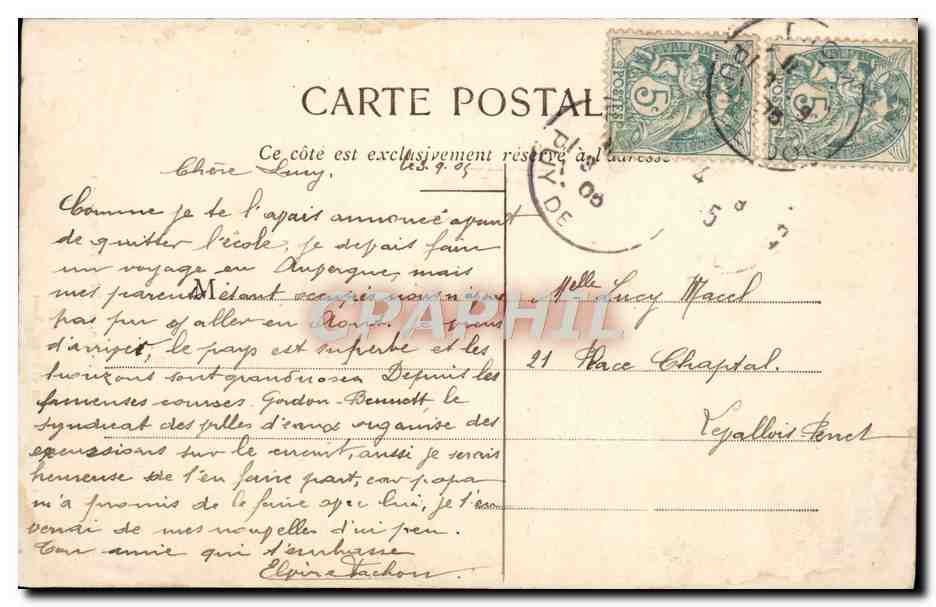 CARTE POSTALE
Ce côté est exclusivement réservé à l'adresse
Chère Lucy, le 3.9.05
Comme je te l'avais annoncé avant
de quitter l'école, je devais faire
un voyage en Auvergne, mais
mes parents étant occupés nous n'avons
pas pu y aller en Août. Je viens
d'arriver, le pays est superbe et les
horizons sont grandioses Depuis les
fameuses courses Gordon-Bennett, le
syndicat des villes d'eaux organise des
excursions sur le circuit, aussi je serais
heureuse de t'en faire part, car papa
m'a promis de le faire avec lui, je t'en-
verrai de mes nouvelles d'ici peu.
Ton amie qui t'embrasse
Elvire Vachon.
M
Melle Lucy Macel
21 Place Chaptal.
Levallois-Perret
CPAPHIL
POSTES
5c
5c
PUY DE